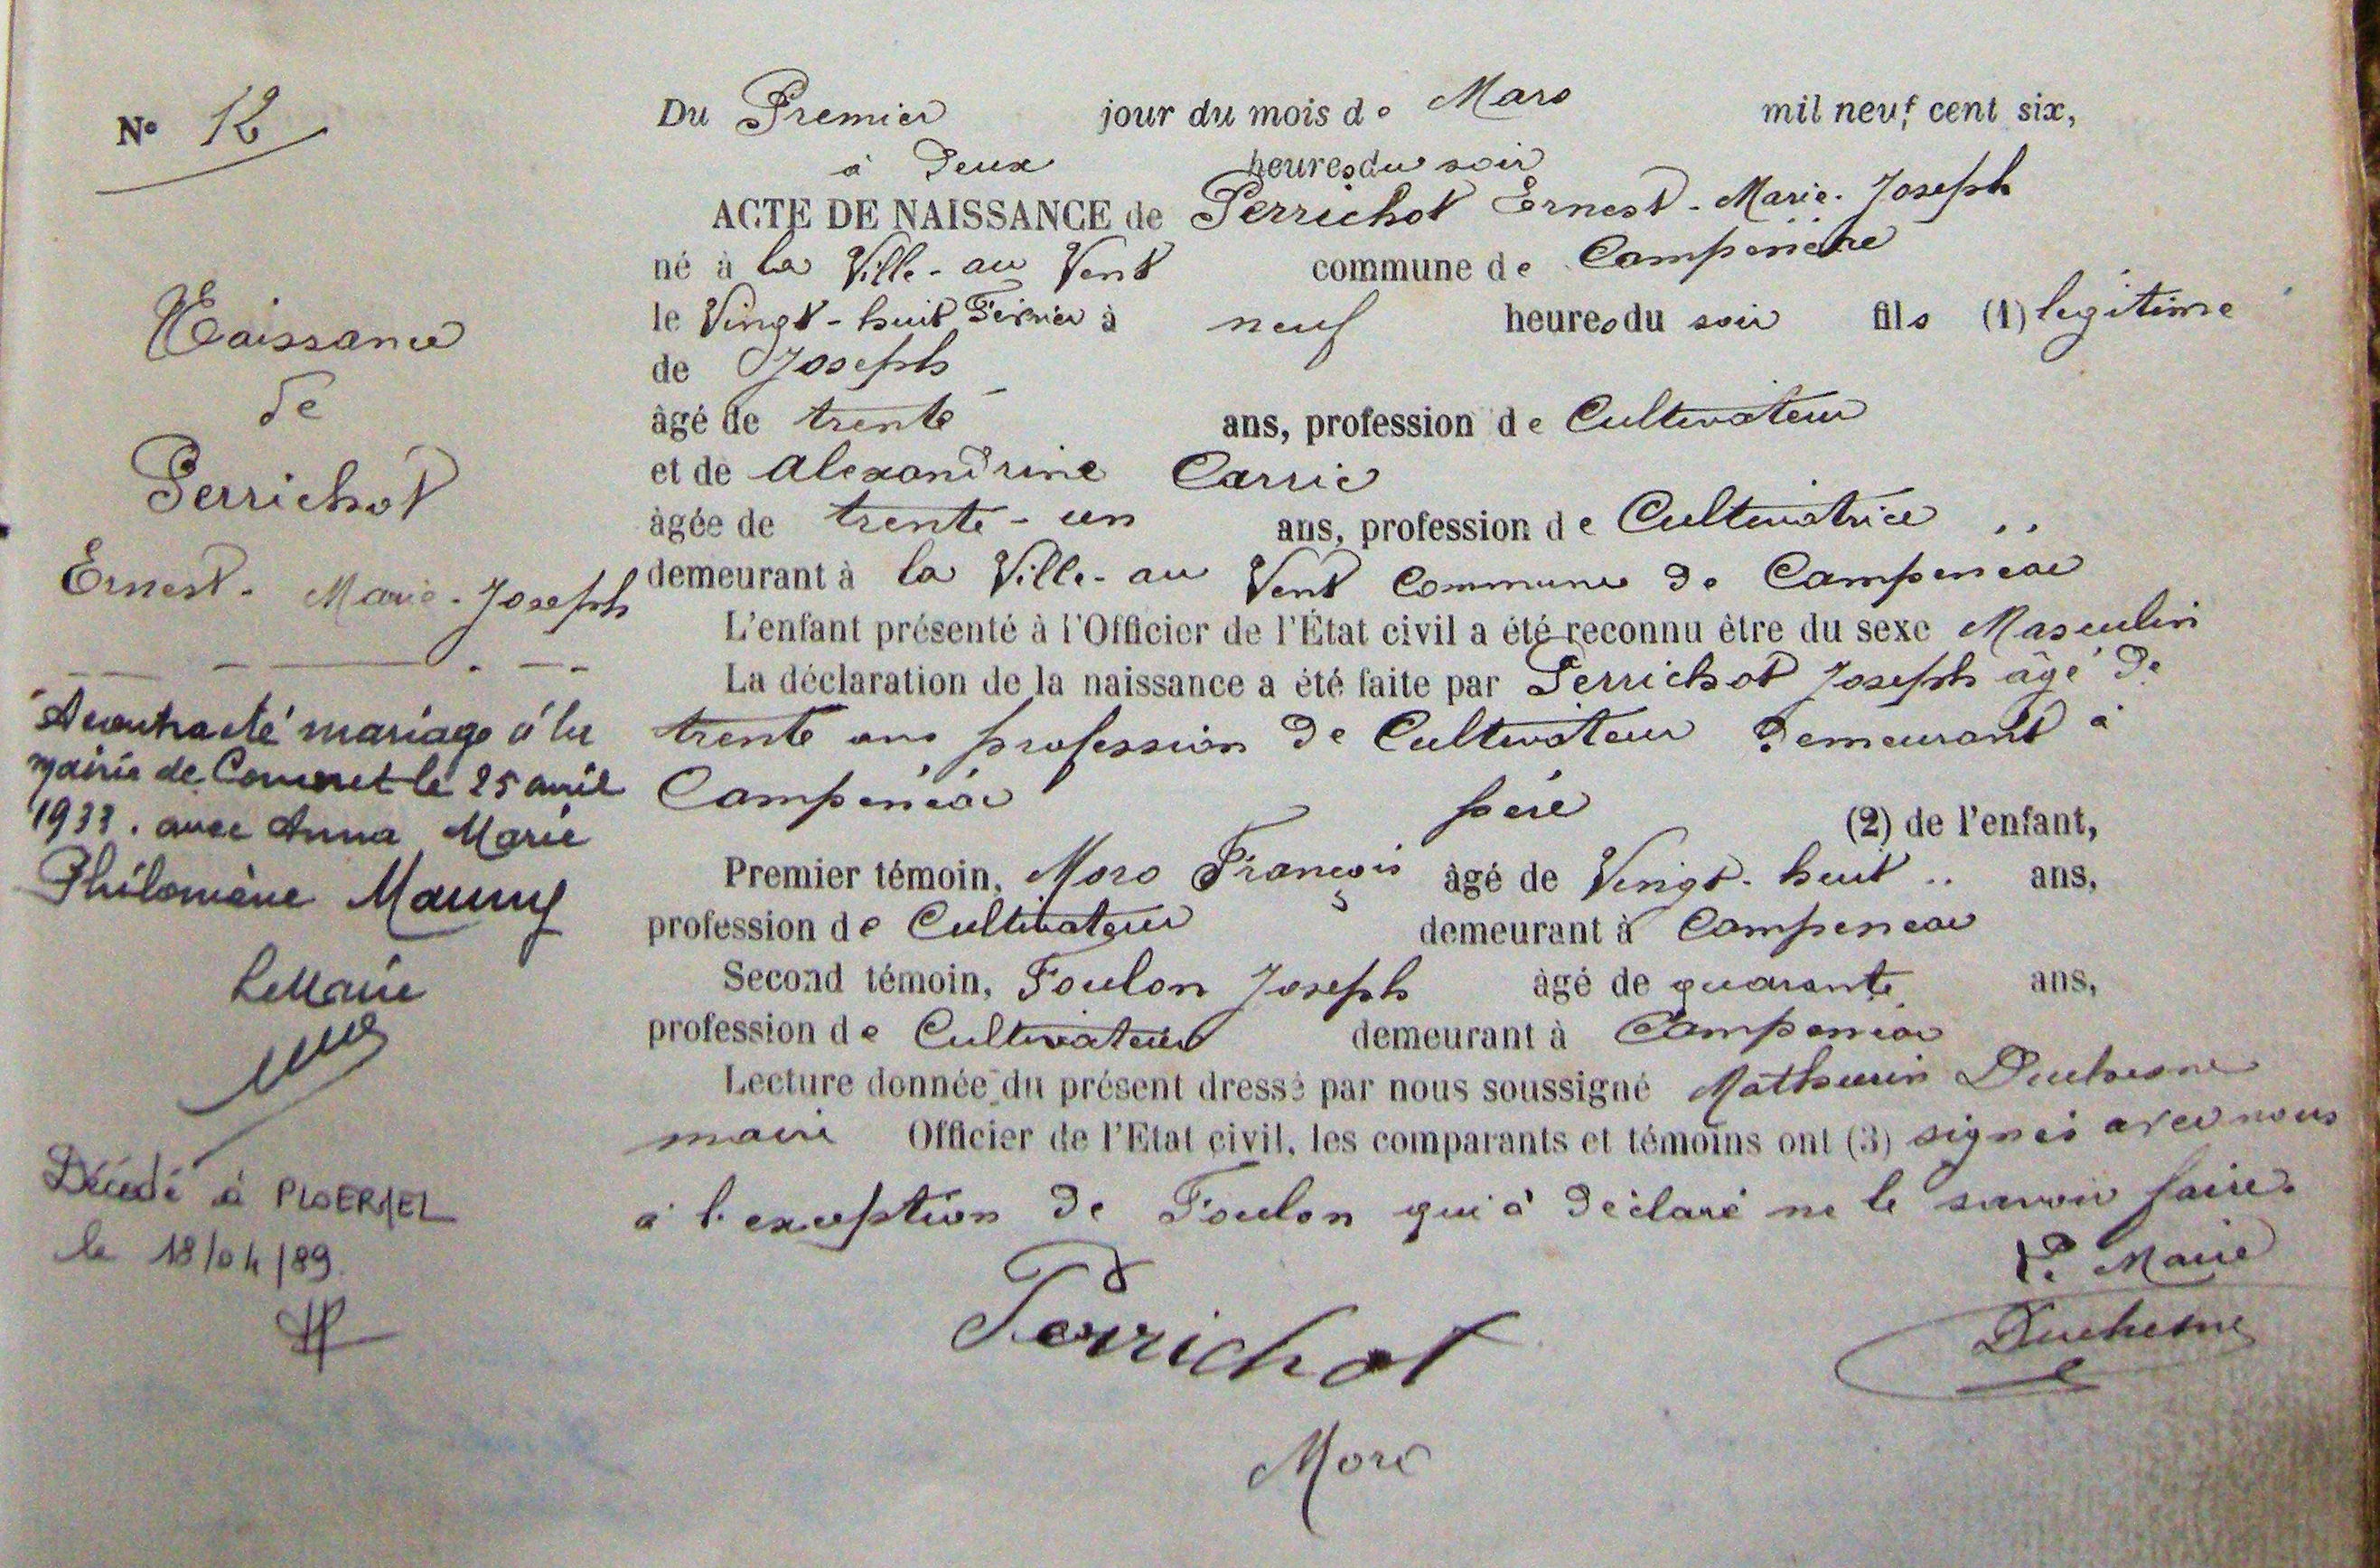 N° 12
Naissance
de
Perrichot
Ernest - Marie - Joseph
A contracté mariage à la
mairie de le 25 avril
1933. avec Anna Marie
Philomène Mauny
Le Maire
Décédé à PLOERMEL
le 18/04/89.
Du Premier jour du mois de Mars mil neuf cent six,
à deux heures du soir
ACTE DE NAISSANCE de Perrichot Ernest - Marie - Joseph
né à la Ville - au Vent commune de Campénéac
le Vingt - huit Février à neuf heures du soir fils (1) légitime
de Joseph
âgé de trente ans, profession de Cultivateur
et de Alexandrine Carric
âgée de trente - un ans, profession de Cultivatrice
demeurant à la Ville - au Vent Commune de Campénéac
L'enfant présenté à l'Officier de l'État civil a été reconnu être du sexe Masculin
La déclaration de la naissance a été faite par Perrichot Joseph âgé de
trente ans profession de Cultivateur demeurant à
Campénéac père (2) de l'enfant,
Premier témoin, Moro François âgé de Vingt - huit ans,
profession de Cultivateur demeurant à Campénéac
Second témoin, Foulon Joseph âgé de quarante ans,
profession de Cultivateur demeurant à Campénéac
Lecture donnée du présent dressé par nous soussigné Mathurin Duchesne
maire Officier de l'Etat civil, les comparants et témoins ont (3) signés avec nous
à l'exception de Foulon qui a déclaré ne le savoir faire.
Le Maire
Perrichot
Duchesne
Moro